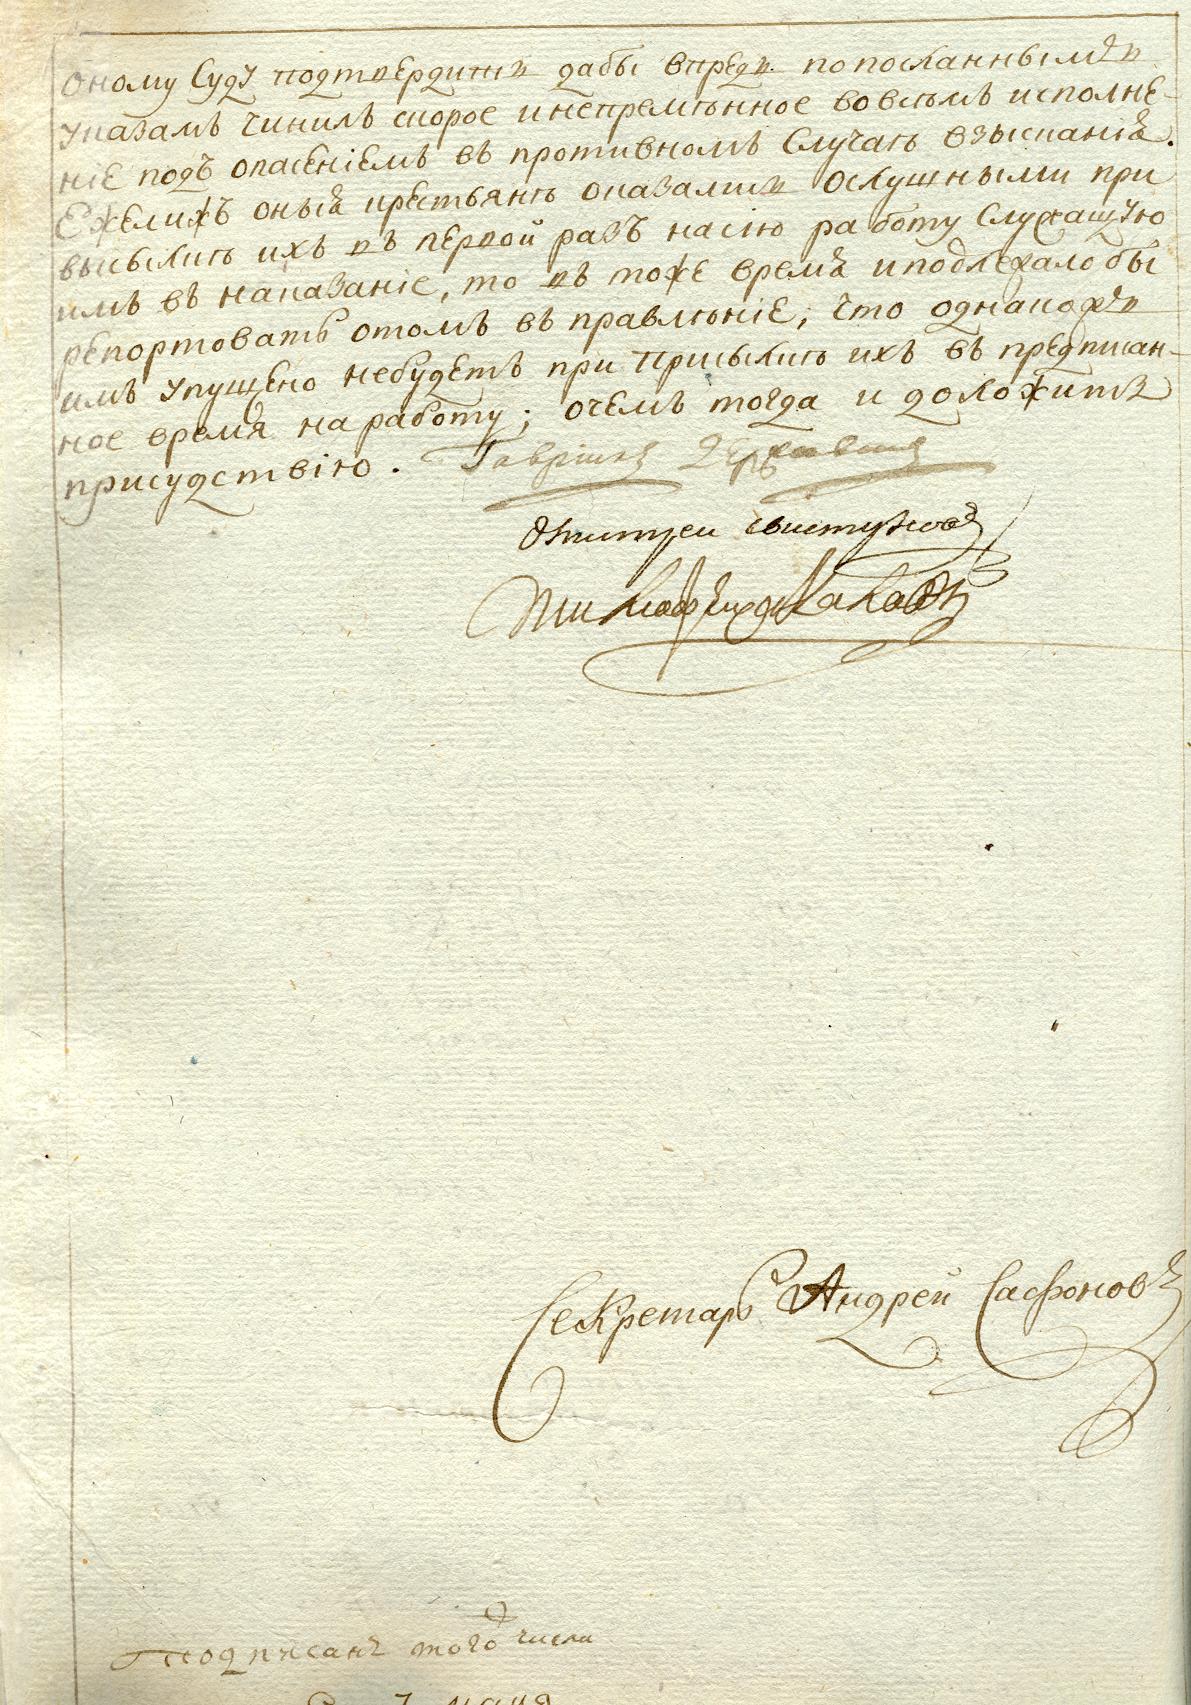 оному Суду подтвердить дабы впредь по посланнымъ
указамъ чинилъ скорое и непременное во всемъ исполне-
ніе подъ опасеніемъ въ противномъ Случаѣ взысканія.
Ежелижъ оныя крестьянѣ оказались ослушными при
высылкѣ ихъ въ первой разъ на сію работу Служащую
имъ въ наказаніе, то въ тоже время и подлежало бы
репортовать о томъ въ правленіе, что однакожъ
имъ упущено небудетъ при присылкѣ ихъ въ предписан-
ное время на работу; о чемъ тогда и доложить
присудствію. Гавріилъ Державинъ
Дмитреи Свистуновъ
Секретарь Андрей Сафоновъ
Подписанъ того числа
7 маия